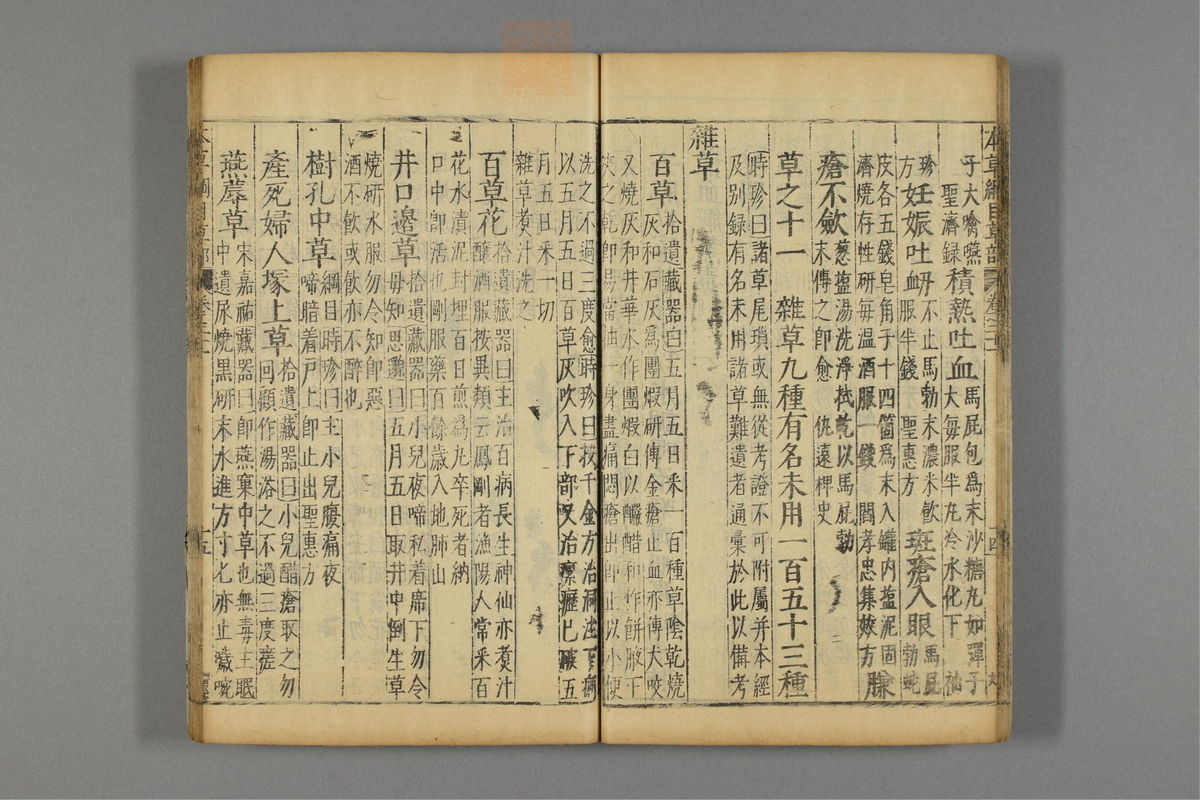 本草綱目草部 卷之二十一 十四
子大噙嚥
聖濟錄積熱吐血馬屁包爲末沙糖丸如彈子大每服半丸冷水化下袖
珍方妊娠吐衄不止馬勃末濃米飲服半錢 聖惠方 斑瘡入眼馬屁勃蛇
皮各五錢皂角子十四箇爲末入罐內鹽泥固濟燒存性研每溫酒服一錢 閻孝忠集效方臁
瘡不斂葱鹽湯洗淨拭乾以馬屁勃末傅之卽愈 仇遠稗史
草之十一 雜草九種有名未用一百五十三種
時珍曰諸草尾瑣或無從考證不可附屬并本經
及別錄有名未用諸草難遺者通彙於此以備考
雜草
百草拾遺藏器曰五月五日采一百種草陰乾燒灰和石灰爲團煅研傅金瘡止血亦傅犬咬
又燒灰和井華水作團煅白以釅醋和作餅腋下夾之乾卽易當抽一身盡痛悶瘡出卽止以小便
洗之不過三度愈時珍曰按千金方治洞注下痢以五月五日百草灰吹入下部又治瘰癧已破五
月五日采一切雜草煑汁洗之
百草花拾遺藏器曰主治百病長生神仙亦煑汁釀酒服按異類云鳳剛者漁陽人常采百
花水漬泥封埋百日煎爲丸卒死者納口中卽活也剛服藥百餘歲入地肺山
井口邊草拾遺藏器曰小兒夜啼私着席下勿令母知思邈曰五月五日取井中倒生草
燒研水服勿令知卽惡酒不飲或飲亦不醉也
樹孔中草綱目時珍曰主小兒腹痛夜啼暗着戶上卽止出聖惠方
產死婦人塚上草拾遺藏器曰小兒醋瘡取之勿回顧作湯浴之不過三度瘥
燕蓐草宋嘉祐藏器曰卽燕窠中草也無毒主眠中遺尿燒黑研末水進方寸匕亦止噦啘
本草綱目草部 卷之二十一 十五